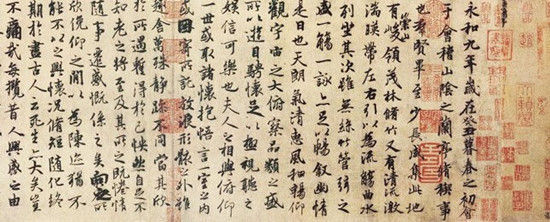 永和九年歲在癸丑暮春之初會
于會稽山陰之蘭亭脩稧事
也羣賢畢至少長咸集此地
有崇山峻領茂林脩竹又有清流激
湍暎帶左右引以為流觴曲水
列坐其次雖無絲竹管弦之
盛一觴一詠亦足以暢敘幽情
是日也天朗氣清惠風和暢仰
觀宇宙之大俯察品類之盛
所以遊目騁懷足以極視聽之
娛信可樂也夫人之相與俯仰
一世或取諸懷抱悟言一室之內
或因寄所託放浪形骸之外雖
趣舍萬殊靜躁不同當其欣
於所遇暫得於己怏然自足不
知老之將至及其所之既惓情
隨事遷感慨係之矣向之所
欣俛仰之閒以為陳迹猶不
能不以之興懷況脩短隨化終
期於盡古人云死生亦大矣豈
不痛哉每攬昔人興感之由